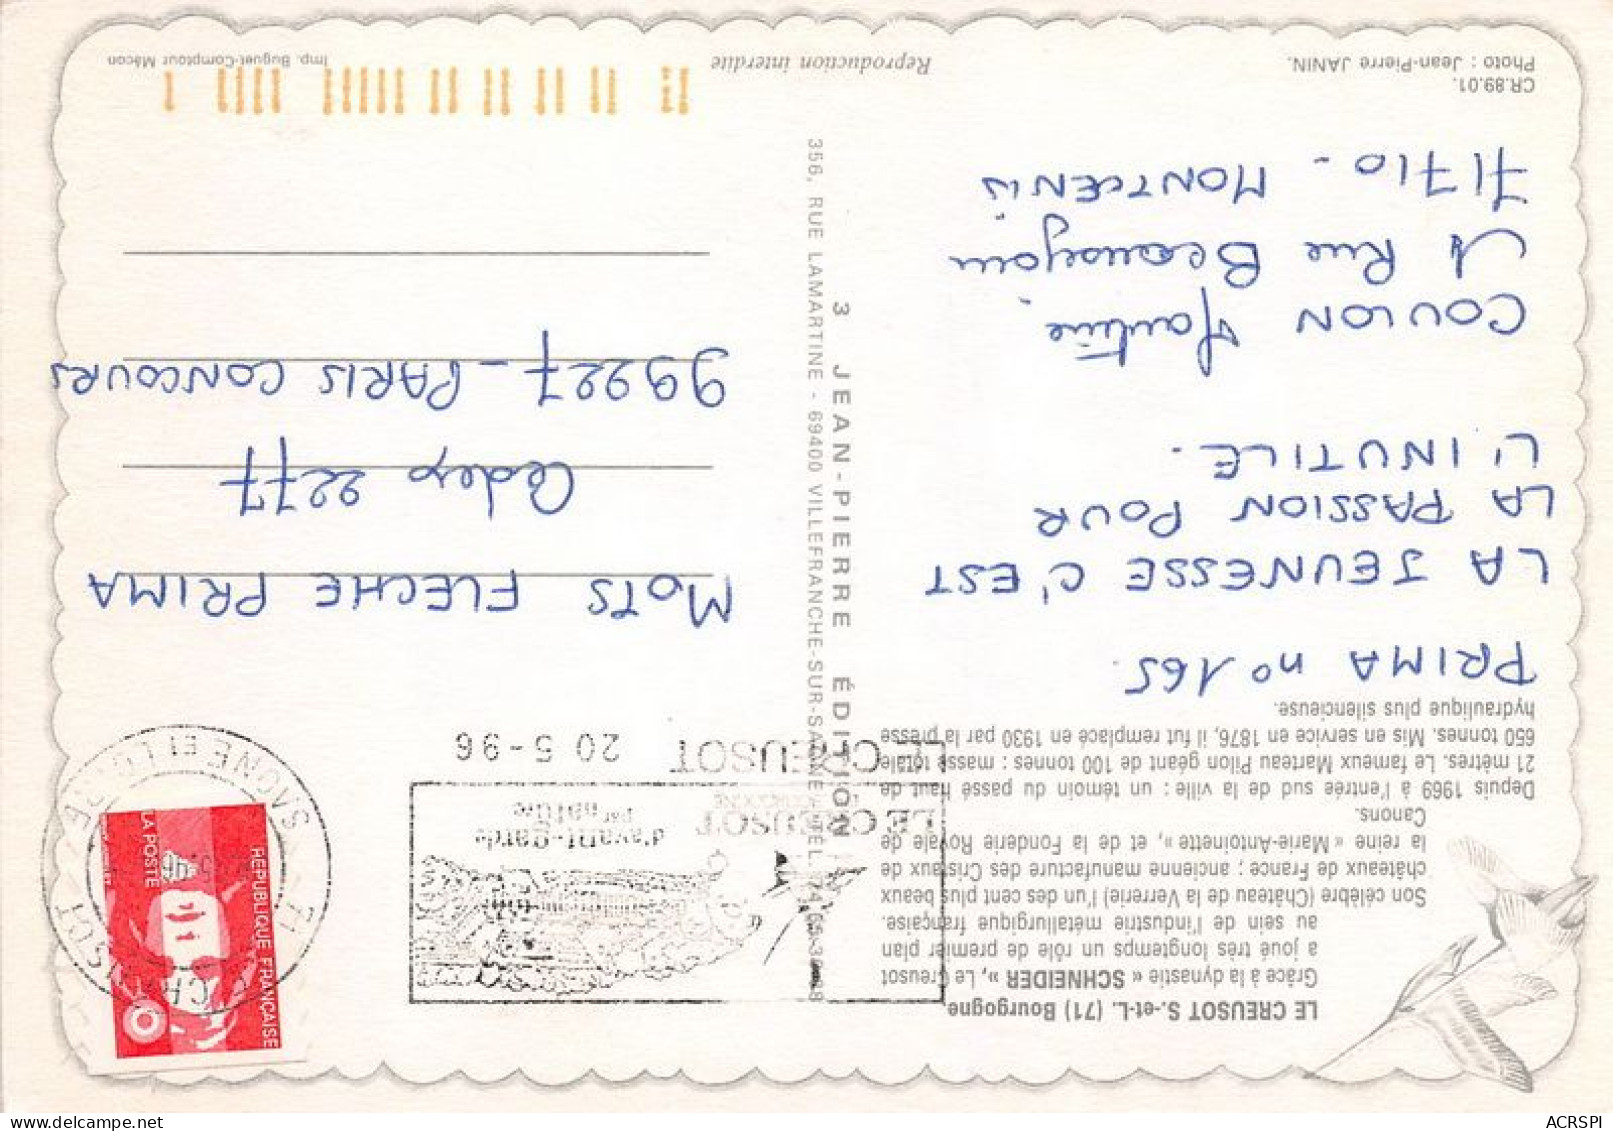 LE CREUSOT S.-et-L. (71) Bourgogne
Grâce à la dynastie « SCHNEIDER », Le Creusot
a joué très longtemps un rôle de premier plan
au sein de l'industrie métallurgique française.
Son célèbre (Château de la Verrerie) l'un des cent plus beaux
châteaux de France ; ancienne manufacture des Cristaux de
la reine « Marie-Antoinette », et de la Fonderie Royale de
Canons.
Depuis 1969 à l'entrée sud de la ville : un témoin du passé haut de
21 mètres. Le fameux Marteau Pilon géant de 100 tonnes : masse totale
650 tonnes. Mis en service en 1876, il fut remplacé en 1930 par la presse
hydraulique plus silencieuse.
PRIMA n° 165.
LA JEUNESSE C'EST
LA PASSION POUR
L'INUTILE.
COULON Martine.
1 Rue Beausejour
71710 - MONTCENIS
CR.89.01.
Photo : Jean-Pierre JANIN.
3 JEAN-PIERRE ÉDITION
356, RUE LAMARTINE - 69400 VILLEFRANCHE-SUR-SAÔNE - TÉL. 74.65.30.68
Reproduction interdite
Imp. Buguet-Comptour Mâcon
RÉPUBLIQUE FRANÇAISE
LA POSTE
71
SAONE ET LOIRE
LE CREUSOT
EN BOURGOGNE
d'avant-garde
par
nature
LE CREUSOT
20 5-96
MOTS FLECHE PRIMA
Cedex 2277
99227 - PARIS CONCOURS
ACRSPI